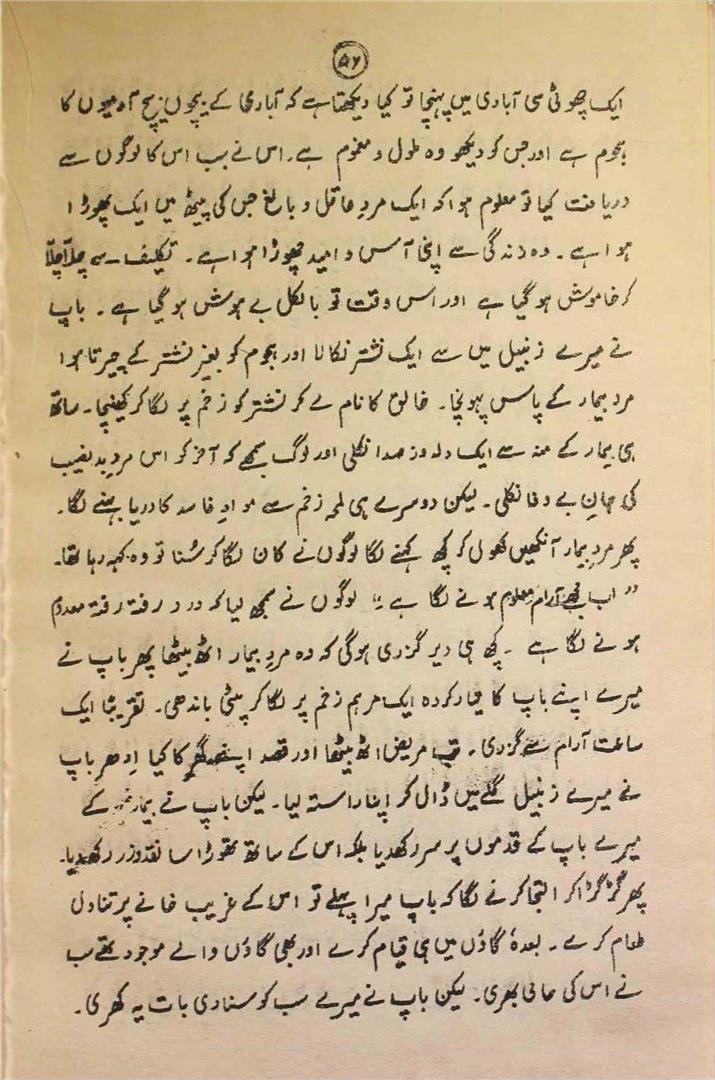 ۵۶
ایک چھوٹی سی آبادی میں پہنچا تو کیا دیکھتا ہے کہ آبادی کے بیچوں بیچ آدمیوں کا
ہجوم ہے اور جس کو دیکھو وہ ملول و مغموم ہے۔ اس نے سبب اس کا لوگوں سے
دریافت کیا تو معلوم ہوا کہ ایک مردِ عاقل و بالغ جس کی پیٹھ میں ایک پھوڑا
ہوا ہے۔ وہ زندگی سے اپنی آس و امید چھوڑا ہوا ہے۔ تکلیف سے چلّا چلّا
کر خاموش ہو گیا ہے اور اس وقت تو بالکل بے ہوش ہو گیا ہے۔ باپ
نے میرے زنبیل میں سے ایک نشتر نکالا اور ہجوم کو بغیر نشتر کے چیرتا ہوا
مردِ بیمار کے پاس پہونچا۔ خالق کا نام لے کر نشتر کو زخم پر لگا کر کھینچا۔ ساتھ
ہی بیمار کے منہ سے ایک دلدوز صدا نکلی اور لوگ سمجھے کہ آخر کو اس مردِ بدنصیب
کی جانِ بے وفا نکلی۔ لیکن دوسرے ہی لمحہ زخم سے موادِ فاسد کا دریا بہنے لگا۔
پھر مردِ بیمار آنکھیں کھول کر کچھ کہنے لگا لوگوں نے کان لگا کر سُنا تو وہ کہہ رہا تھا۔
"اب مجھے آرام معلوم ہونے لگا ہے" لوگوں نے سمجھ لیا کہ درد رفتہ رفتہ معدوم
ہونے لگا ہے۔ کچھ ہی دیر گزری ہوگی کہ وہ مردِ بیمار اٹھ بیٹھا پھر باپ نے
میرے اپنے باپ کا تیار کردہ ایک مرہم زخم پر لگا کر پٹی باندھی۔ تقریباً ایک
ساعت آرام سے گزری۔ تب مریض اٹھ بیٹھا اور قصد اپنے گھر کا کیا اِدھر باپ
نے میرے زنبیل گلے میں ڈال کر اپنا راستہ لیا۔ لیکن باپ نے بیمار کے
میرے باپ کے قدموں پر سر رکھدیا بلکہ اس کے ساتھ تھوڑا سا نقد و زر رکھدیا۔
پھر گڑگڑا کر التجا کرنے لگا کہ باپ میرا پہلے تو اس کے غریب خانے پر تناول
طعام کرے۔ بعدہٗ گاؤں میں ہی قیام کرے اور بھی گاؤں والے موجود تھے سب
نے اس کی حامی بھری۔ لیکن باپ نے میرے سب کو سنا دی بات یہ کھری۔